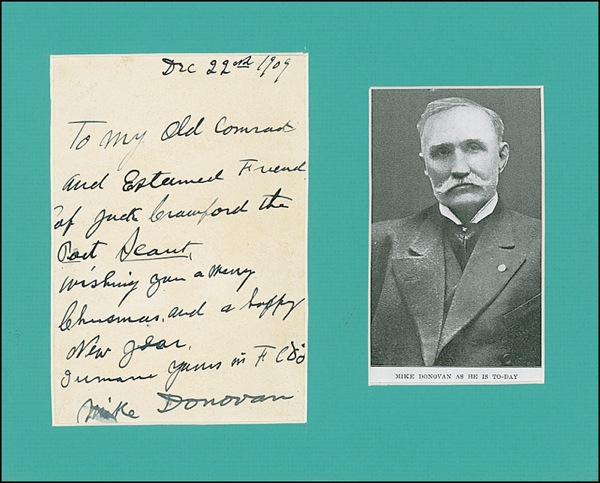 Dec 22nd 1909
To My Old Comrad
and Esteamed Friend
of Jack Crawford the
Poet Scout,
wishing you a merry
Chrismas, and a happy
New year,
I remane yours in F C &
Mike Donovan
MIKE DONOVAN AS HE IS TO-DAY